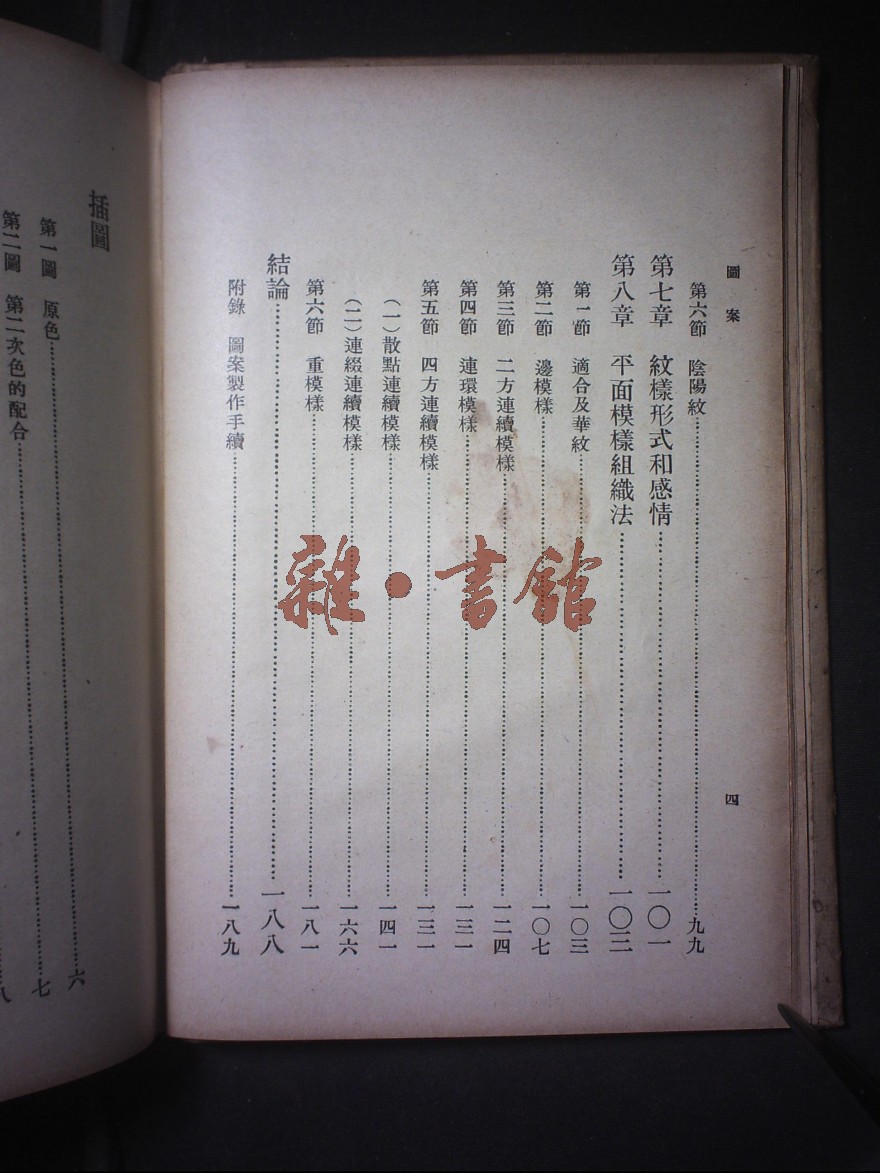 圖案
四
第六節　陰陽紋……九九
第七章　紋樣形式和感情……一〇一
第八章　平面模樣組織法……一〇三
第一節　適合及華紋……一〇三
第二節　邊模樣……一〇七
第三節　二方連續模樣……一二四
第四節　連環模樣……一三一
第五節　四方連續模樣……一三一
（一）散點連續模樣……一四一
（二）連綴連續模樣……一六六
第六節　重模樣……一八一
結論……一八八
附錄　圖案製作手續……一八九
插圖
第一圖　原色……六
第二圖　第二次色的配合……七
八
雜・書館